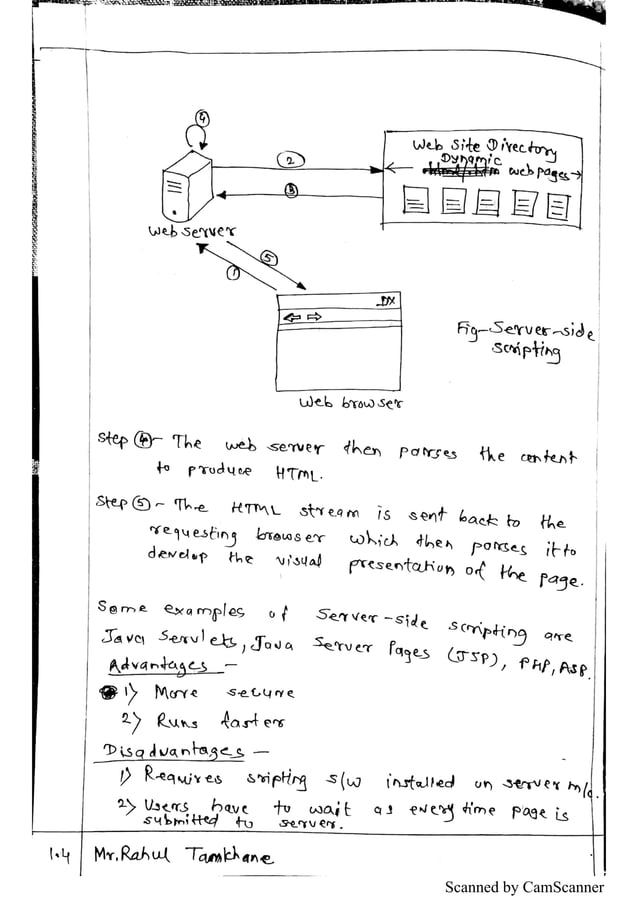 4
Web Site Directory
Dynamic
web pages
2
3
Web server
5
1
DX
Fig-Server-side
scripting
Web browser
Step 4 - The web server then parses the content
to produce HTML.
Step 5 - The HTML stream is sent back to the
requesting browser which then parses it to
develop the visual presentation of the page.
Some examples of Server-side scripting are
Java Servlets, Java Server Pages (JSP), PHP, ASP.
Advantages -
1) More secure
2) Runs faster
Disadvantages -
1) Requires sripting s/w installed on server m/c.
2) Users have to wait as every time page is
submitted to server.
1.4 Mr. Rahul Tamkhane
Scanned by CamScanner